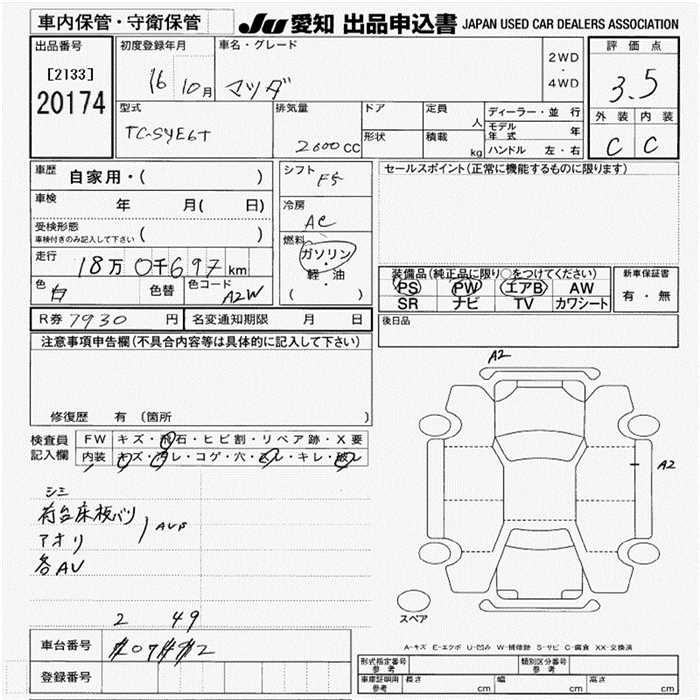 車内保管・守衛保管
JU 愛知 出品申込書 JAPAN USED CAR DEALERS ASSOCIATION
出品番号
[2133]
20174
初度登録年月
16 10月
車名・グレード
マツダ
2WD
・
4WD
評価点
3.5
外装 内装
C C
型式
TC-SYE6T
排気量
2000cc
ドア
形状
定員
人
積載
kg
ディーラー・並行
モデル年式 年
ハンドル 左・右
車歴 自家用・( )
車検 年 月( 日)
受検形態
車検付きのみ記入して下さい ( )
走行 18万0千697km
色 白 色替 色コード A2W
シフト
F5
冷房
AC
燃料
ガソリン
・
軽・油
( )
セールスポイント(正常に機能するものに限ります)
装備品(純正品に限り○をつけてください)
PS PW エアB AW
SR ナビ TV カワシート
新車保証書
有・無
R券 7930 円 名変通知期限 月 日
後日品
注意事項申告欄(不具合内容等は具体的に記入して下さい)
修復歴 有 (箇所 )
検査員記入欄
FW キズ・飛石・ヒビ割・リペア跡・X要
内装 キズ・汚レ・コゲ・穴・スレ・キレ・破レ
シミ
荷台床板バツ
アオリ
AUB
各AU
A2
A2
スペア
2 49
車台番号
登録番号
A-キズ E-エクボ U-凹み W-補修跡 S-サビ C-腐食 XX-交換済
形式指定番号
参考
類別区分番号
参考
車庫証明用
参考
長さ cm 幅 cm 高さ cm